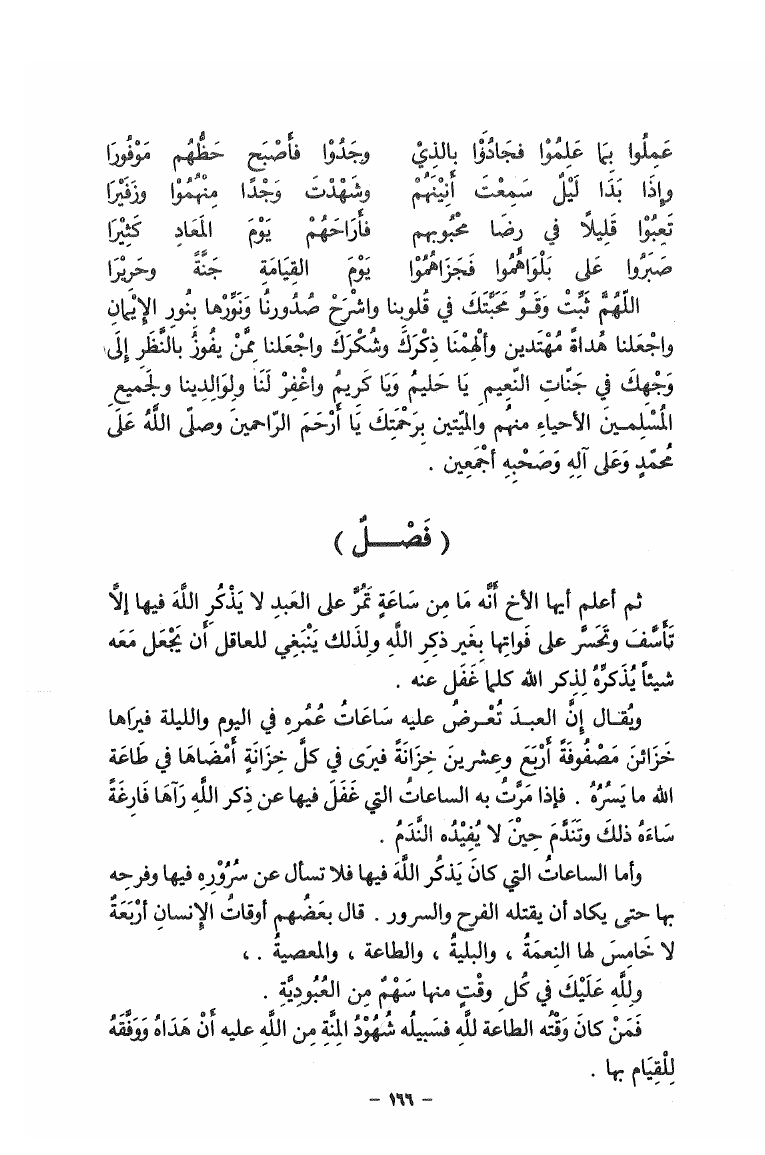 عَمِلُوا بِمَا عَلِمُوْا فجَادُوْا بِالذِيْ وجَدُوْا فأَصْبَح حَظُّهُم مَوْفُورَا
وإِذَا بَدَا لَيْلٌ سَمِعْتَ أَنِيْنَهُمْ وشَهْدْتَ وَجْدًا مِنْهُمُوْا وزَفَيْرَا
تَعِبُوْا قَلِيلًا في رِضَا مَحْبُوبِهم فأَرَاحَهُمْ يَوْمَ المَعَادِ كَثِيْرَا
صَبَرُوا عَلى بَلْوَاهُمُوا فَجَزَاهُمُوْا يَوْمَ القِيَامَةِ جَنَّةً وحَرِيْرَا
اللّهُمَّ ثَبِّتْ وَقَوِّ مَحَبَّتَكَ في قُلوبِنا واشْرَحْ صُدُورنُا وَنَوِّرْها بِنُورِ الإِيْمَانِ
واجْعَلنا هُداةً مُهْتَدين وألْهِمْنَا ذِكْرَكَ وشُكْرَكَ واجْعَلنا مِمَّنْ يفُوزُ بالنَّظَرِ إِلَى
وَجْهِكَ في جَنَّاتِ النَّعِيمِ يَا حَليمُ وَيَا كَرِيمُ واغْفِرْ لَنَا ولِوَالِدِينا ولِجَميعِ
المُسْلِمـينَ الأحياءِ منهُم والميّتين بِرَحْمَتِكَ يَا أَرْحَمَ الرّاحمينَ وصلّى اللَّهُ عَلَى
مُحمّدٍ وَعَلى آلِهِ وَصَحْبِهِ أجْمَعِين .
( فَصْــــلٌ )
ثم أعلم أيها الأخ أَنَّه مَا مِن سَاعَةٍ تَمُرُّ على العَبدِ لا يَذْكُرِ اللَّهَ فيها إِلاَّ
تَأسَّفَ وتَحَسَّر على فَواتِها بِغَير ذكِرِ اللَّهِ ولِذَلك يَنْبَغِي للعاقل أَن يَجْعَل مَعَه
شيئاً يُذَكرِّهُ لِذِكر الله كلما غَفَل عنه .
ويُقـال إِنَّ العبـدَ تُعْـرضُ عليه سَاعَاتُ عُمُرهِ في اليوم والليلة فيرَاها
خَزَائنَ مَصْفُوفَةً أَرْبَعَ وعِشرينَ خِزَانَةً فيرَى في كلَّ خِزَانَةٍ أَمْضَاهَا في طَاعَة
الله ما يَسُرُهُ . فإذا مَرَّتُ به الساعاتُ التي غَفَلَ فيها عن ذِكر اللَّهِ رَآهَا فَارِغَةً
سَاءَهُ ذلكَ وتَنَدَّمَ حِيْنَ لا يُفِيْدُه النَّدَمُ .
وأما الساعاتُ التي كانَ يَذكُر اللَّهَ فيها فلا تسأل عن سُرُوْرِهِ فيها وفرحِه
بها حتى يكاد أن يقتله الفرح والسرور . قال بعَضُهم أوقاتُ الإِنسانِ أرْبَعَةٌ
لا خَامِسَ لها النِعمَةُ ، والبليةُ ، والطاعة ، والمعصيةُ . ،
وللَّهِ عَلَيْكَ في كُلِ وقْتٍ منها سَهْمٌ مِن العُبُودِيَّةِ .
فَمَنْ كانَ وَقْتُه الطاعة للَّهِ فسَبيلُه شُهُوْدُ المِنَّةِ مِن اللَّهِ عليه أَنْ هَدَاهُ وَوَفَّقَهُ
لِلْقِيَام بها .
– ١٦٦ –